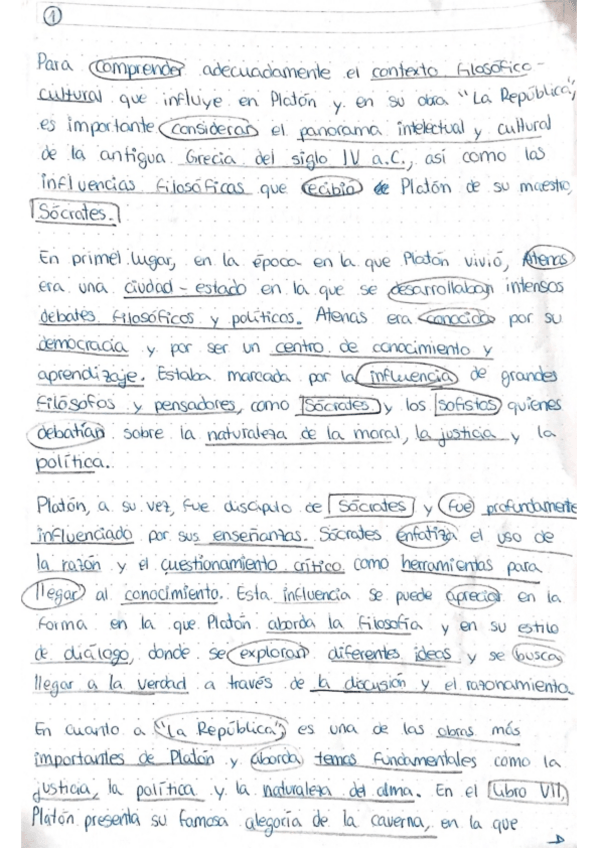 1
Para comprender adecuadamente el contexto filosófico-
cultural que influye en Platón y en su obra "La República",
es importante considerar el panorama intelectual y cultural
de la antigua Grecia del siglo IV a.C., así como las
influencias filosóficas que recibió de Platón de su maestro,
Sócrates.
En primer lugar, en la época en la que Platón vivió, Atenas
era una ciudad-estado en la que se desarrollaban intensos
debates filosóficos y políticos. Atenas era conocida por su
democracia y por ser un centro de conocimiento y
aprendizaje. Estaba marcada por la influencia de grandes
filósofos y pensadores, como Sócrates y los sofistas quienes
debatían sobre la naturaleza de la moral, la justicia y la
política.
Platón, a su vez, fue discípulo de Sócrates y fue profundamente
influenciado por sus enseñanzas. Sócrates enfatiza el uso de
la razón y el cuestionamiento crítico como herramientas para
llegar al conocimiento. Esta influencia se puede apreciar en la
forma en la que Platón aborda la filosofía y en su estilo
de diálogo, donde se exploran diferentes ideas y se busca
llegar a la verdad a través de la discusión y el razonamiento.
En cuanto a "La República" es una de las obras más
importantes de Platón y aborda temas fundamentales como la
justicia, la política y la naturaleza del alma. En el libro VII,
Platón presenta su famosa alegoría de la caverna, en la que